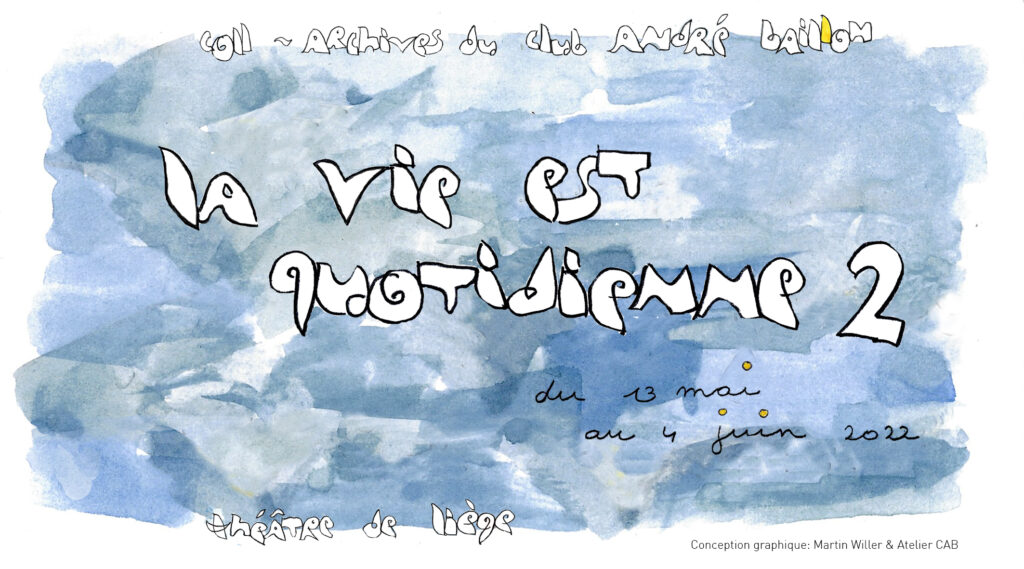 coll ~ ARCHIVES du club ANDRÉ baillon
la vie est
quotidienne 2
du 13 mai
au 4 juin 2022
théâtre de liège
Conception graphique: Martin Willer & Atelier CAB